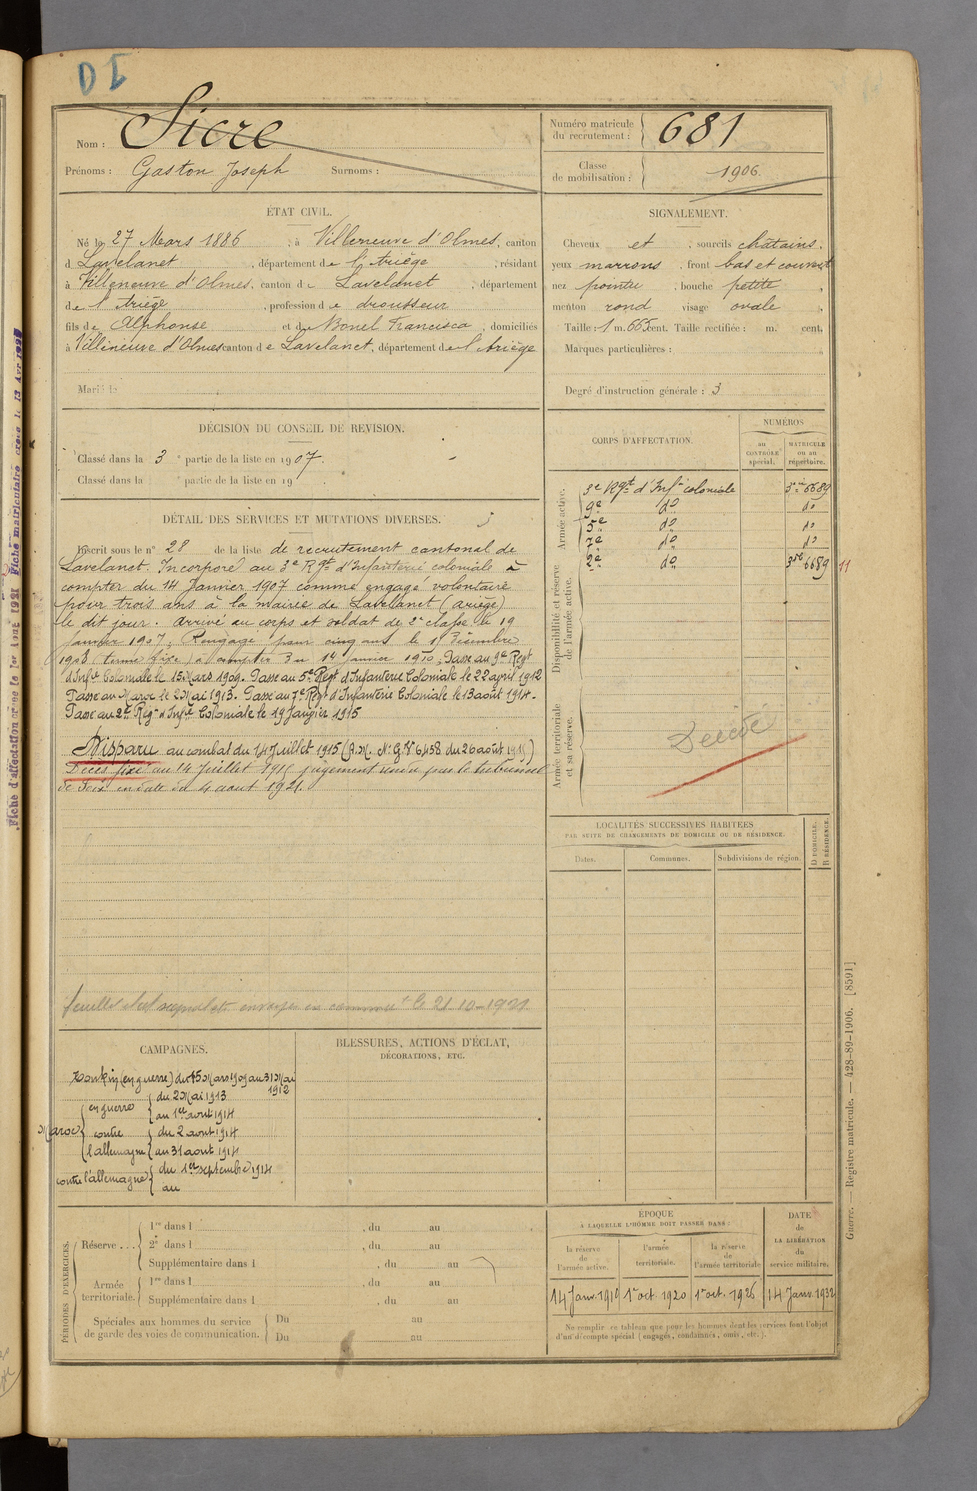 DI
Nom : Sicre
Prénoms : Gaston Joseph Surnoms :
Numéro matricule du recrutement : 681
Classe de mobilisation : 1906.
ÉTAT CIVIL.
Né le 27 Mars 1886, à Villeneuve d'Olmes, canton
d Lavelanet, département de l'Ariège, résidant
à Villeneuve d'Olmes, canton de Lavelanet, département
de l'Ariège, profession de drousseur
fils de Alphonse et de Bonel Francisca, domiciliés
à Villeneuve d'Olmes canton de Lavelanet, département de l'Ariège
Marié le
SIGNALEMENT.
Cheveux et sourcils châtains.
yeux marrons, front bas et couvert
nez pointu, bouche petite,
menton rond visage ovale,
Taille : 1 m. 665 cent. Taille rectifiée : m. cent.
Marques particulières :
Degré d'instruction générale : 3
DÉCISION DU CONSEIL DE REVISION.
Classé dans la 3e partie de la liste en 1907.
Classé dans la e partie de la liste en 19
DÉTAIL DES SERVICES ET MUTATIONS DIVERSES.
Inscrit sous le n° 28 de la liste de recrutement cantonal de
Lavelanet. Incorporé au 3e Rgt d'Infanterie coloniale à
compter du 14 Janvier 1907 comme engagé volontaire
pour trois ans à la mairie de Lavelanet (Ariège)
le dit jour. Arrivé au corps et soldat de 2e classe le 19
Janvier 1907. Rengagé pour cinq ans le 1 Décembre
1908 (terme fixe) à compter du 14 janvier 1910. Passe au 9e Régt
d'Infie Coloniale le 15 Mars 1909. Passe au 5e Régt d'Infanterie Coloniale le 22 avril 1912
Passe au Maroc le 2 Mai 1913. Passe au 7e Régt d'Infanterie Coloniale le 13 août 1914.
Passe au 2e Régt d'Infie Coloniale le 19 Janvier 1915
Disparu au combat du 14 Juillet 1915 (A.M. No G.V 6458 du 26 août 1915)
Décès fixé au 14 Juillet 1915 jugement rendu par le tribunal
de Foix en date du 4 aout 1921.
envoyée en le 21-10-1921
CORPS D'AFFECTATION.
NUMÉROS
au CONTRÔLE spécial.
MATRICULE ou au répertoire.
Armée active.
3e Rgt d'Infie coloniale 6689
9e do do
5e do do
7e do do
2e do 6689 11
Disponibilité et réserve de l'armée active.
Armée territoriale et sa réserve.
Décédé
LOCALITÉS SUCCESSIVES HABITÉES
PAR SUITE DE CHANGEMENTS DE DOMICILE OU DE RÉSIDENCE.
Dates. Communes. Subdivisions de région. D DOMICILE. R RÉSIDENCE.
CAMPAGNES.
Tonkin (en guerre) du 15 Mars 1909 au 31 Mai 1912
Maroc en guerre du 2 Mai 1913
au 1er aout 1914
contre l'allemagne du 2 aout 1914
au 31 aout 1914
contre l'allemagne du 1er septembre 1914
au
BLESSURES, ACTIONS D'ÉCLAT,
DÉCORATIONS, ETC.
PÉRIODES D'EXERCICES.
Réserve ... 1re dans l , du au
2e dans l , du au
Supplémentaire dans l , du au
Armée territoriale. 1re dans l , du au
Supplémentaire dans l , du au
Spéciales aux hommes du service de garde des voies de communication. Du au
Du au
ÉPOQUE
À LAQUELLE L'HOMME DOIT PASSER DANS :
la réserve de l'armée active. l'armée territoriale. la réserve de l'armée territoriale
DATE de LA LIBÉRATION du service militaire.
14 Janv. 1910 1er oct. 1920 1er oct. 1926 14 Janv. 1932
Ne remplir ce tableau que pour les hommes dont les services font l'objet
d'un décompte spécial (engagés, condamnés, omis, etc.).
Guerre. — Registre matricule. — 428-89-1906. [8591]